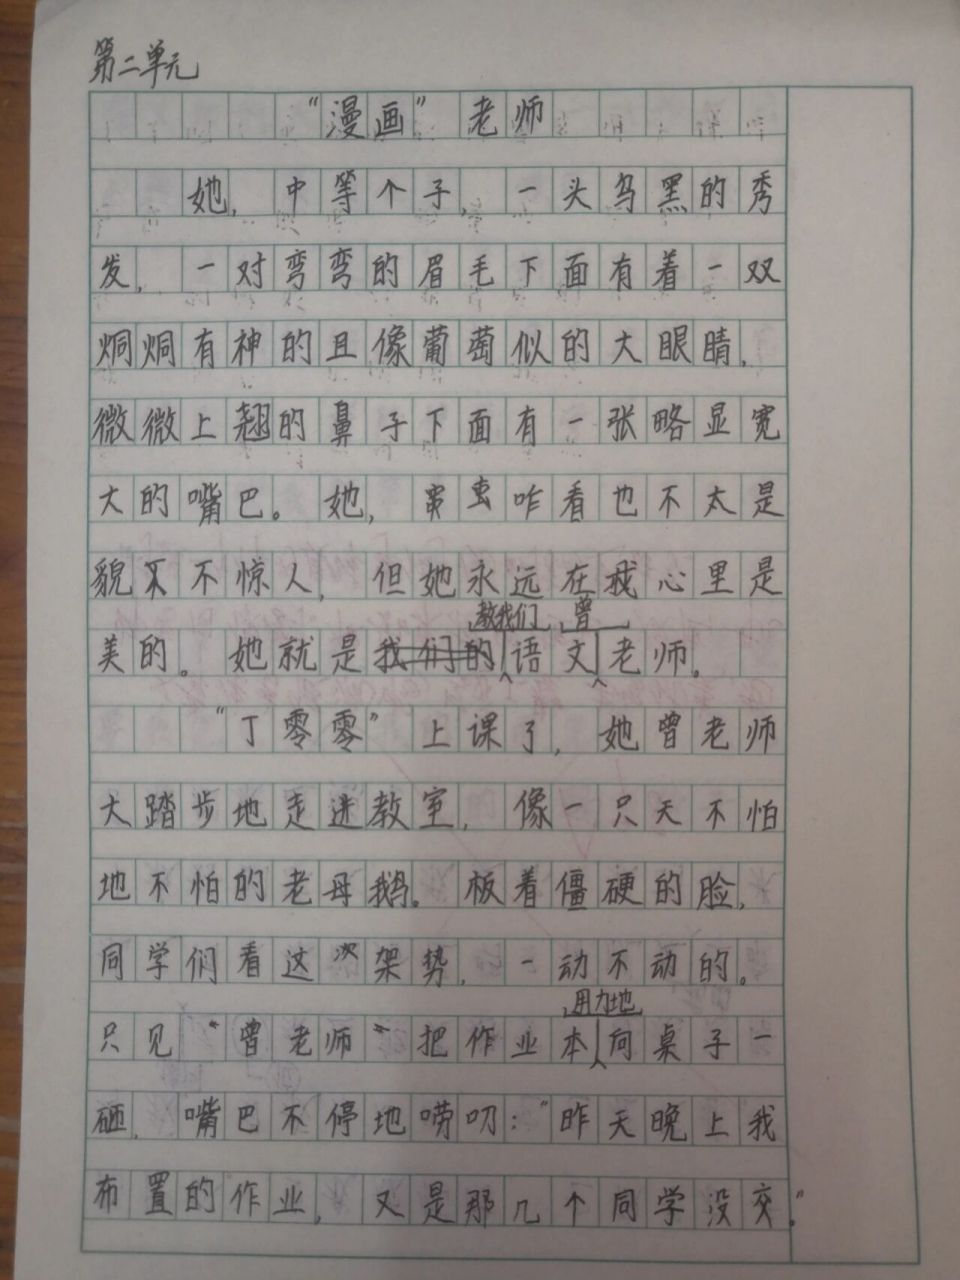 第二单元
“漫画”老师
她，中等个子，一头乌黑的秀
发，一对弯弯的眉毛下面有着一双
炯炯有神的且像葡萄似的大眼睛，
微微上翘的鼻子下面有一张略显宽
大的嘴巴。她，虽咋看也不太是
貌不惊人，但她永远在我心里是
教我们 曾
美的。她就是我们的语文老师。
“丁零零”上课了，她曾老师
大踏步地走进教室，像一只天不怕
地不怕的老母鹅。板着僵硬的脸，
同学们看这次架势，一动不动的。
用力地
只见“曾老师”把作业本向桌子一
砸，嘴巴不停地唠叨：“昨天晚上我
布置的作业，又是那几个同学没交。”